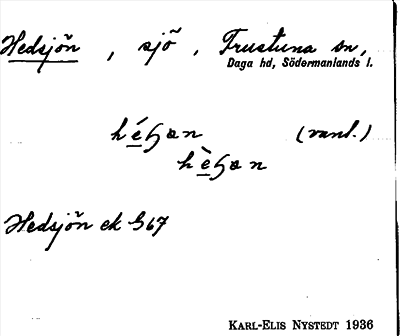 Hedsjön, sjö, Frustuna sn,
Daga hd, Södermanlands l.
(vanl.)
Hedsjön ek G67
KARL-ELIS NYSTEDT 1936